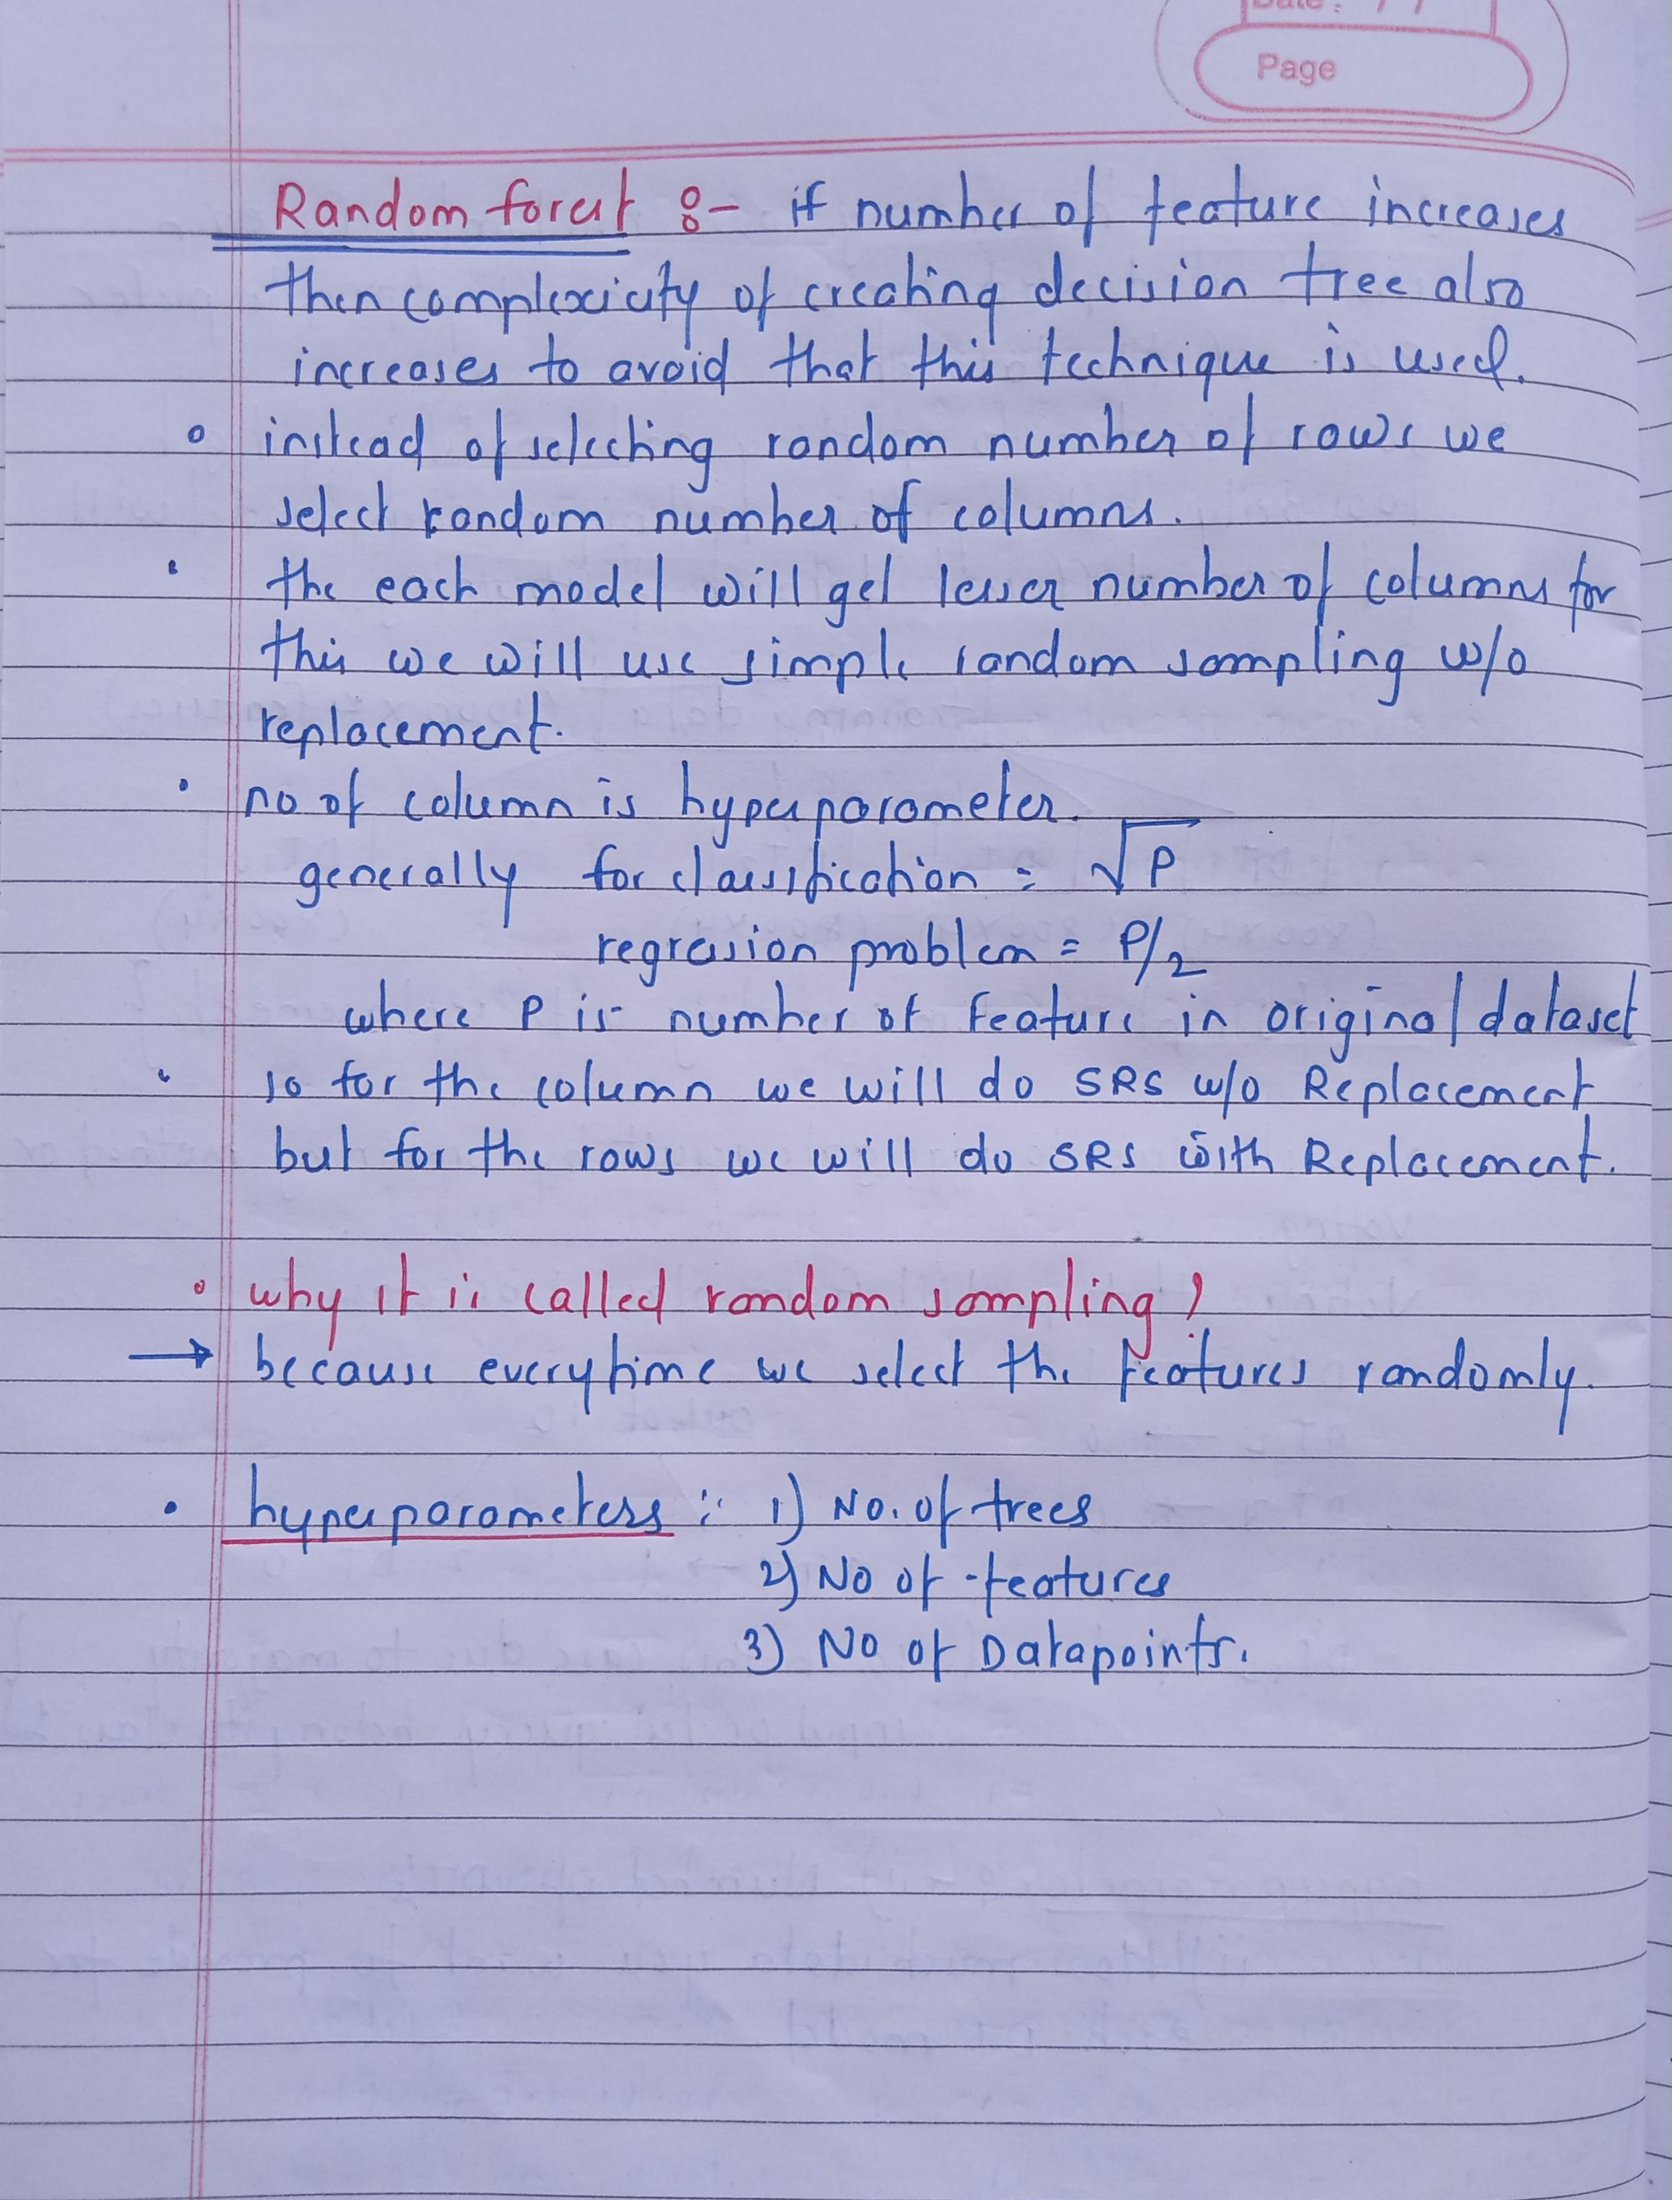 Date : / /
Page
Random forest :- if number of feature increases
then complexicity of creating decision tree also
increases to avoid that this technique is used.
instead of selecting random number of rows we
select random number of columns.
the each model will get lesser number of columns for
this we will use simple random sampling w/o
replacement.
no of column is hyperparameter.
generally for classification = √P
regression problem = P/2
where P is number of feature in original dataset
so for the column we will do SRS w/o Replacement
but for the rows we will do SRS with Replacement.
why it is called random sampling?
→ because everytime we select the features randomly.
hyperparameters :- 1) No. of trees
2) No of features
3) No of Datapoints.